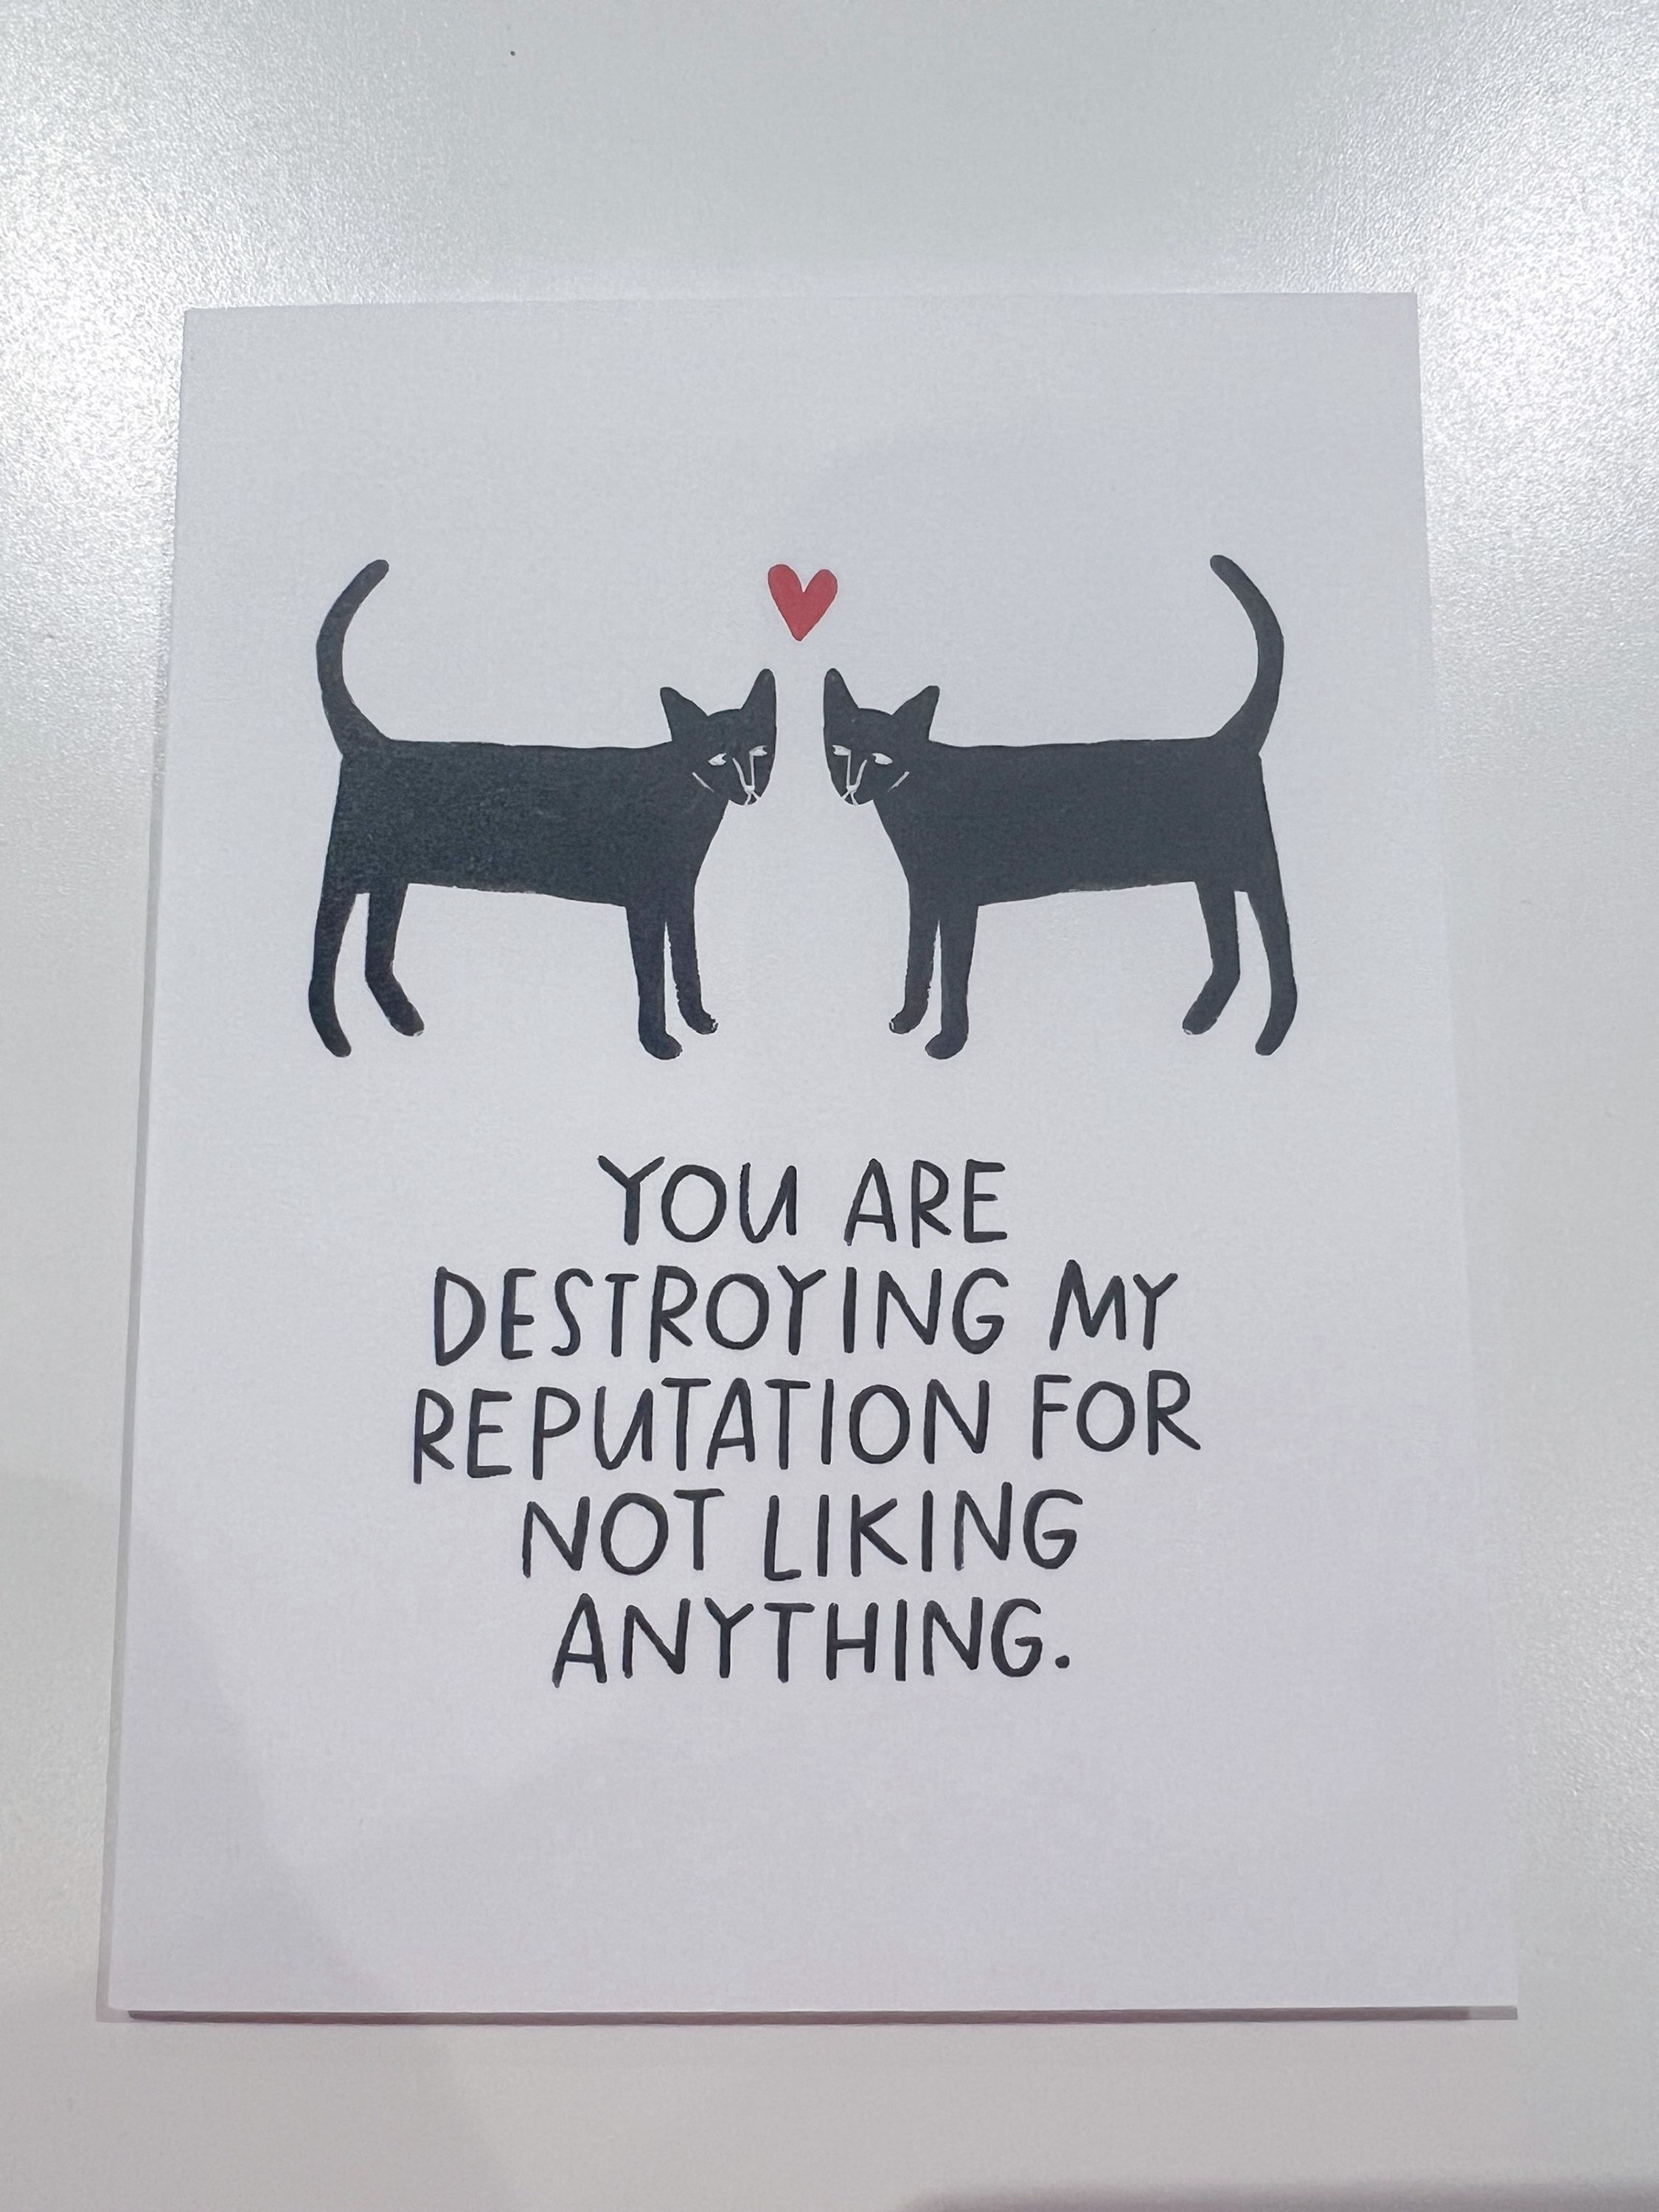 YOU ARE
DESTROYING MY
REPUTATION FOR
NOT LIKING
ANYTHING.